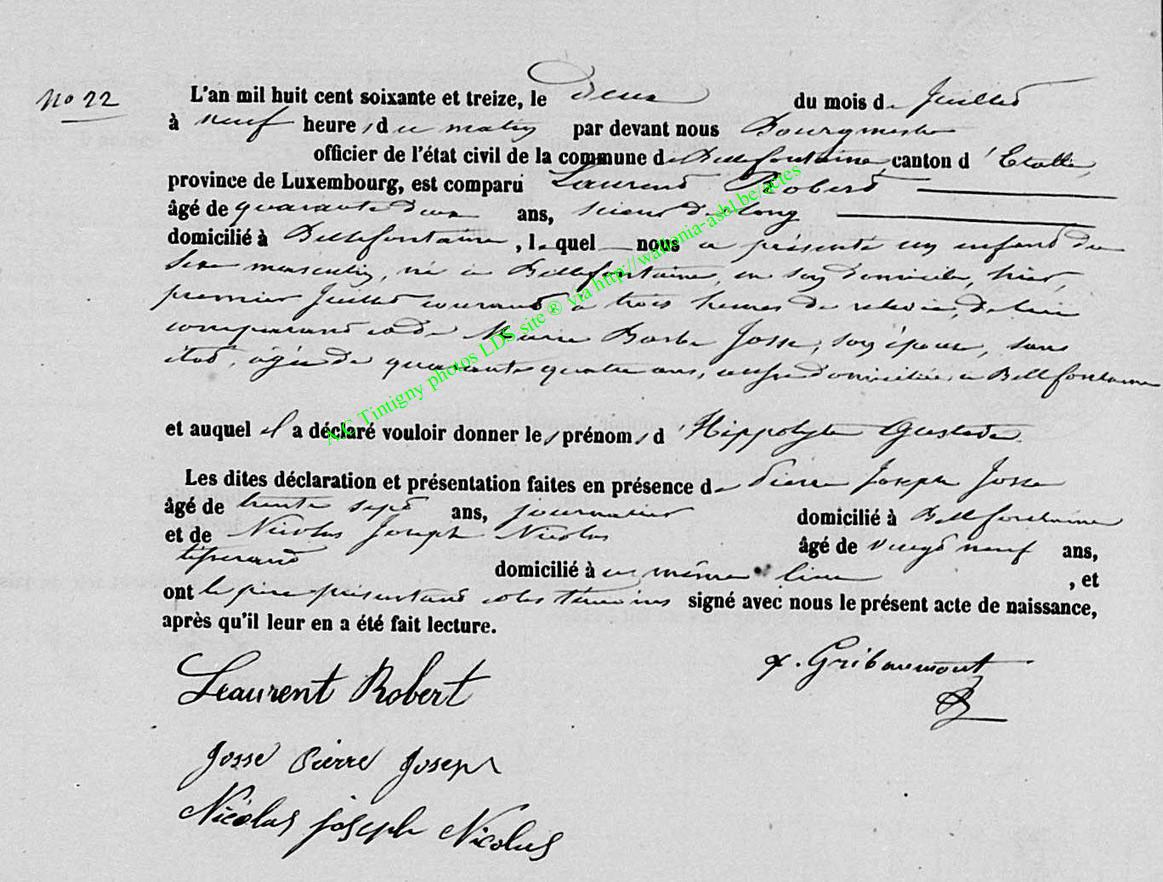 No 22
L'an mil huit cent soixante et treize, le deux du mois de Juillet
à neuf heures du matin par devant nous Bourgmestre
officier de l'état civil de la commune de Bellefontaine, canton d'Etalle,
province de Luxembourg, est comparu Laurent Robert
âgé de quarante deux ans, scieur de long
domicilié à Bellefontaine, lequel nous a présenté un enfant du
sexe masculin, né à Bellefontaine, en son domicile, hier,
premier Juillet courant à trois heures de relevée, de lui
comparant et de Marie Barbe Josse, son épouse, sans
état, âgée de quarante quatre ans, aussi domiciliée à Bellefontaine
et auquel il a déclaré vouloir donner les prénoms d'Hippolyte Gustave.
Les dites déclaration et présentation faites en présence de Pierre Joseph Josse
âgé de trente sept ans, journalier domicilié à Bellefontaine
et de Nicolas Joseph Nicolas âgé de vingt neuf ans,
tisserand domicilié à au même lieu, et
ont le père présentant et les témoins signé avec nous le présent acte de naissance,
après qu'il leur en a été fait lecture.
Leaurent Robert
x. Gribaumont
Josse Pierre Joseph
Nicolas joseph Nicolas
A.C. Tintigny photos LDS site ® via http://wallonia-asbl.be/actes